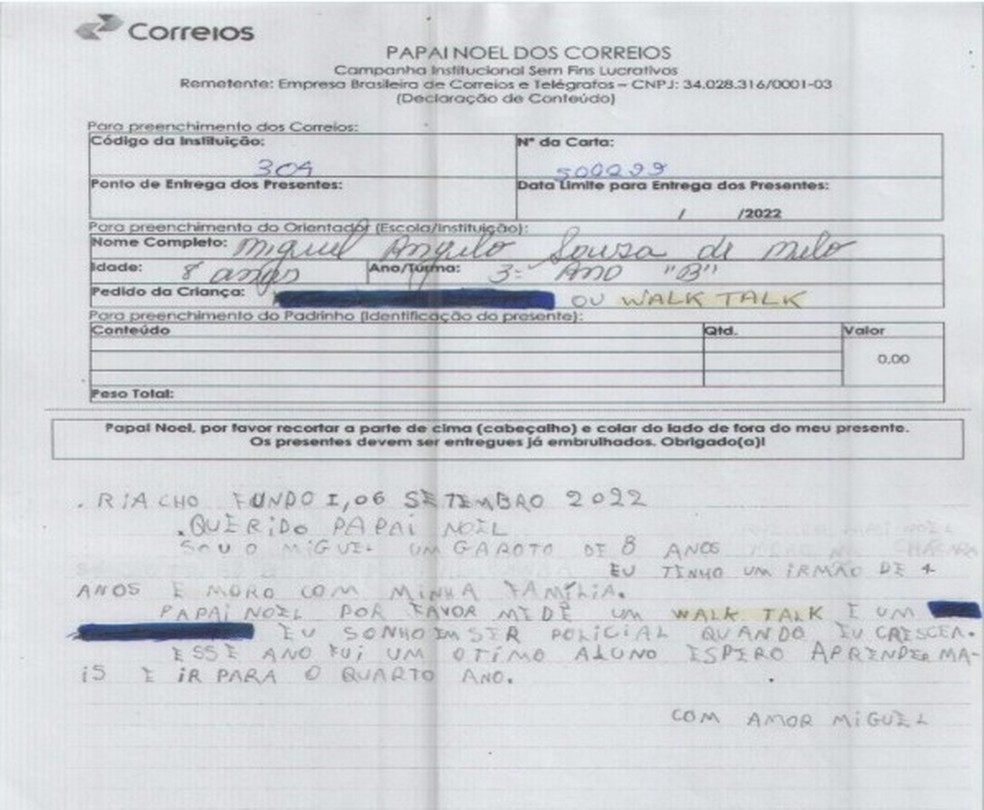 Correios
PAPAI NOEL DOS CORREIOS
Campanha Institucional Sem Fins Lucrativos
Remetente: Empresa Brasileira de Correios e Telégrafos – CNPJ: 34.028.316/0001-03
(Declaração de Conteúdo)
Para preenchimento dos Correios:
Código da Instituição: 304
Nº da Carta: 500299
Ponto de Entrega dos Presentes:
Data Limite para Entrega dos Presentes: / /2022
Para preenchimento do Orientador (Escola/Instituição):
Nome Completo: Miguel Angelo Souza de Melo
Idade: 8 anos Ano/Turma: 3º Ano "B"
Pedido da Criança: OU WALK TALK
Para preenchimento do Padrinho (Identificação do presente):
Conteúdo Qtd. Valor
0,00
Peso Total:
Papai Noel, por favor recortar a parte de cima (cabeçalho) e colar do lado de fora do meu presente.
Os presentes devem ser entregues já embrulhados. Obrigado(a)!
RIACHO FUNDO I, 06 SETEMBRO 2022
.QUERIDO PAPAI NOEL
SOU O MIGUEL UM GAROTO DE 8 ANOS
EU TENHO UM IRMÃO DE 4
ANOS E MORO COM MINHA FAMÍLIA.
PAPAI NOEL POR FAVOR MEDÊ UM WALK TALK E UM
EU SONHO EM SER POLICIAL QUANDO EU CRESCER.
ESSE ANO FUI UM OTIMO ALUNO ESPERO APRENDER MA-
IS E IR PARA O QUARTO ANO.
COM AMOR MIGUEL